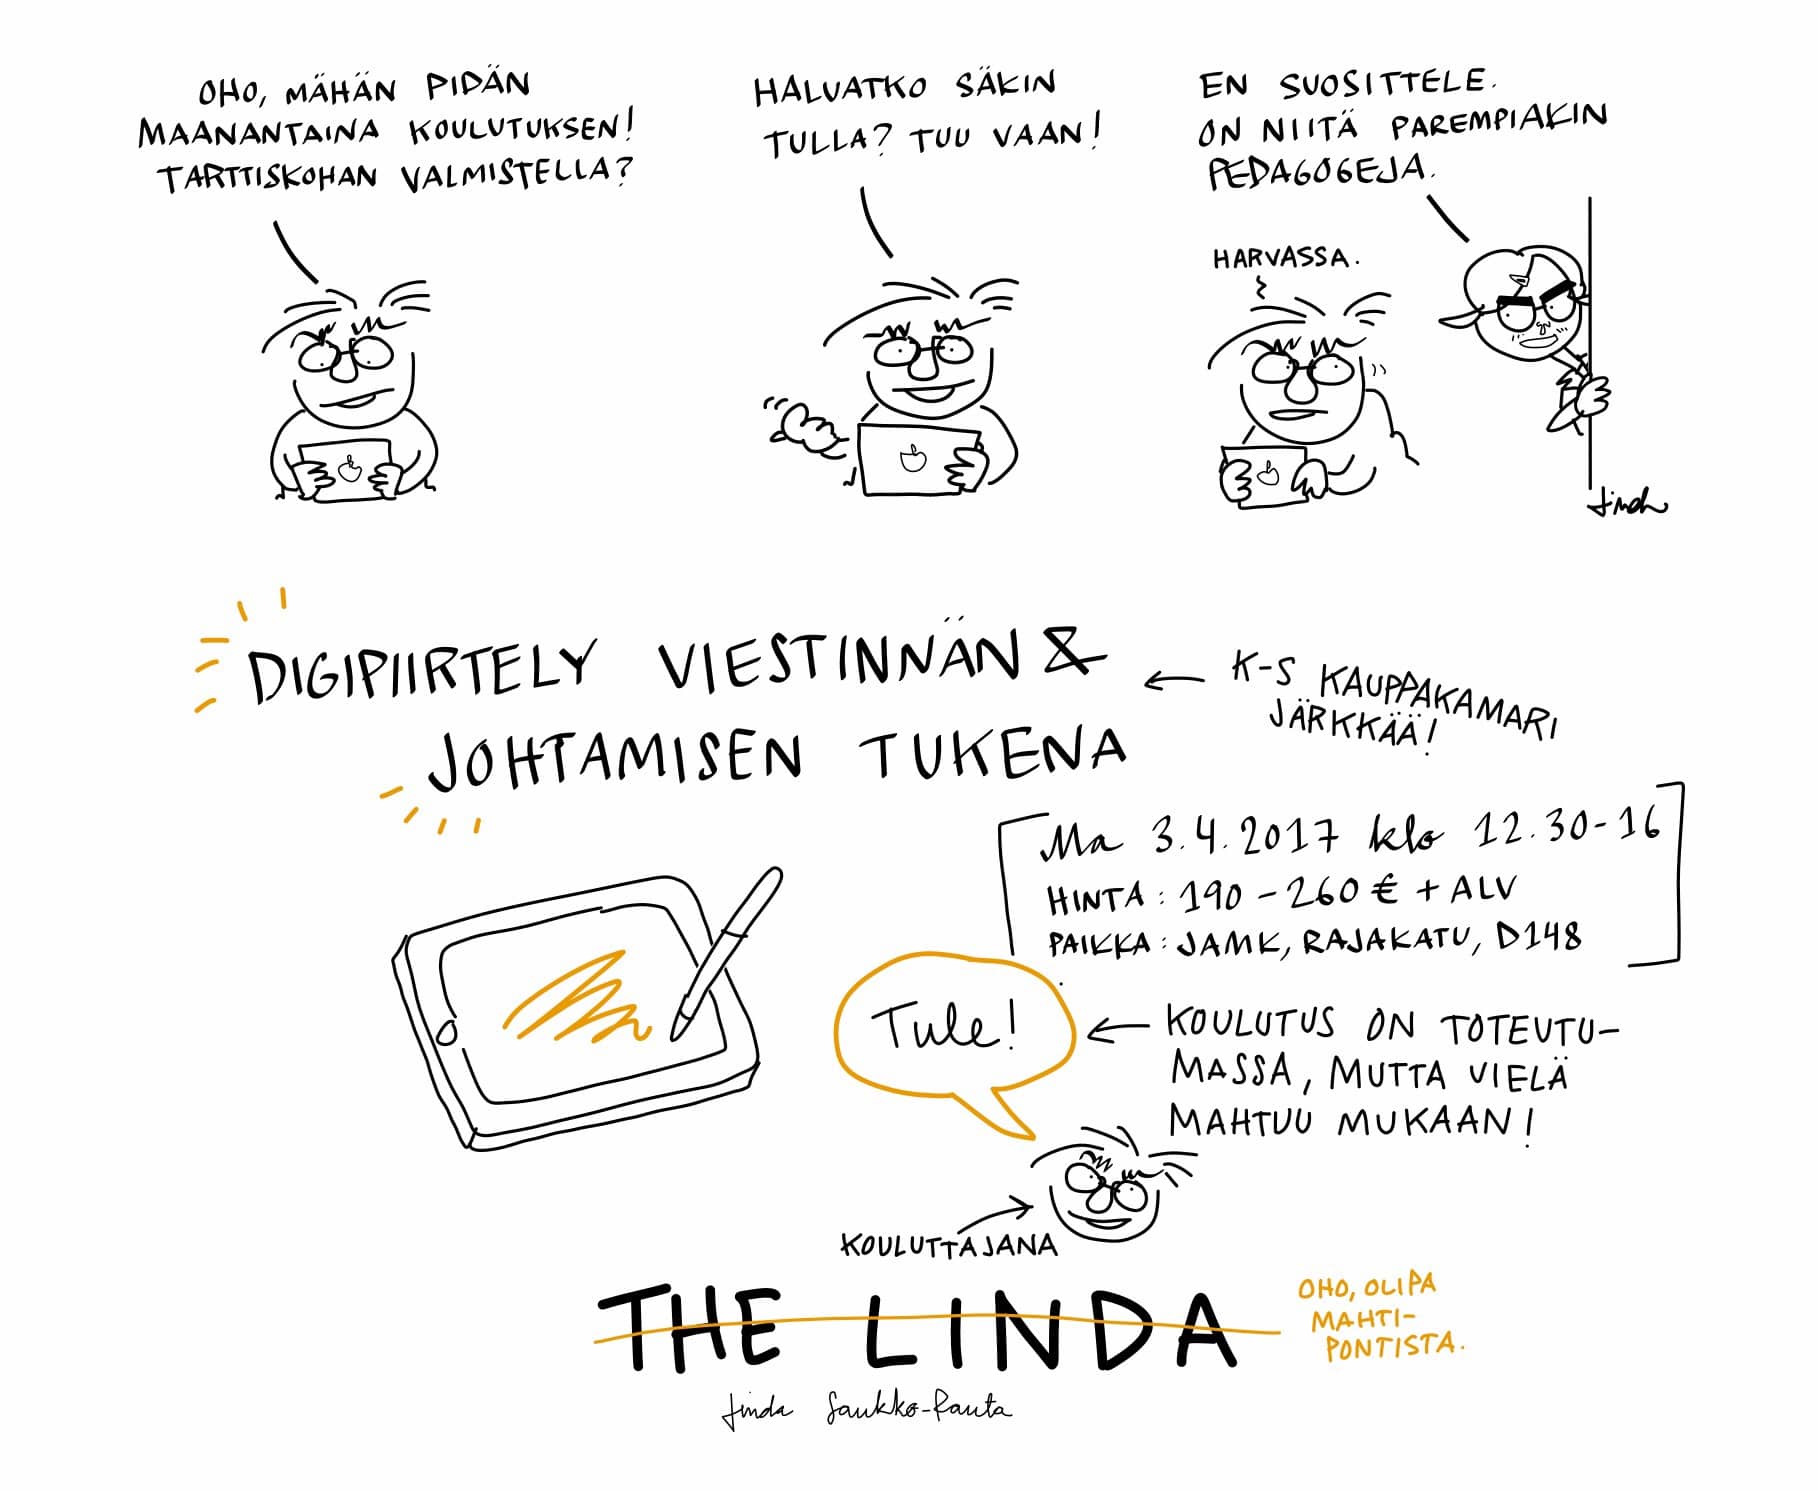 OHO, MÄHÄN PIDÄN
MAANANTAINA KOULUTUKSEN!
TARTTISKOHAN VALMISTELLA?
HALUATKO SÄKIN
TULLA? TUU VAAN!
EN SUOSITTELE.
ON NIITÄ PAREMPIAKIN
PEDAGOGEJA.
HARVASSA.
Linda
DIGIPIIRTELY VIESTINNÄN &
JOHTAMISEN TUKENA
K-S KAUPPAKAMARI
JÄRKKÄÄ!
Ma 3.4.2017 klo 12.30-16
HINTA: 190 - 260 € + ALV
PAIKKA: JAMK, RAJAKATU, D148
Tule!
KOULUTUS ON TOTEUTU-
MASSA, MUTTA VIELÄ
MAHTUU MUKAAN!
KOULUTTAJANA
THE LINDA
OHO, OLIPA
MAHTI-
PONTISTA.
Linda Saukko-Rauta